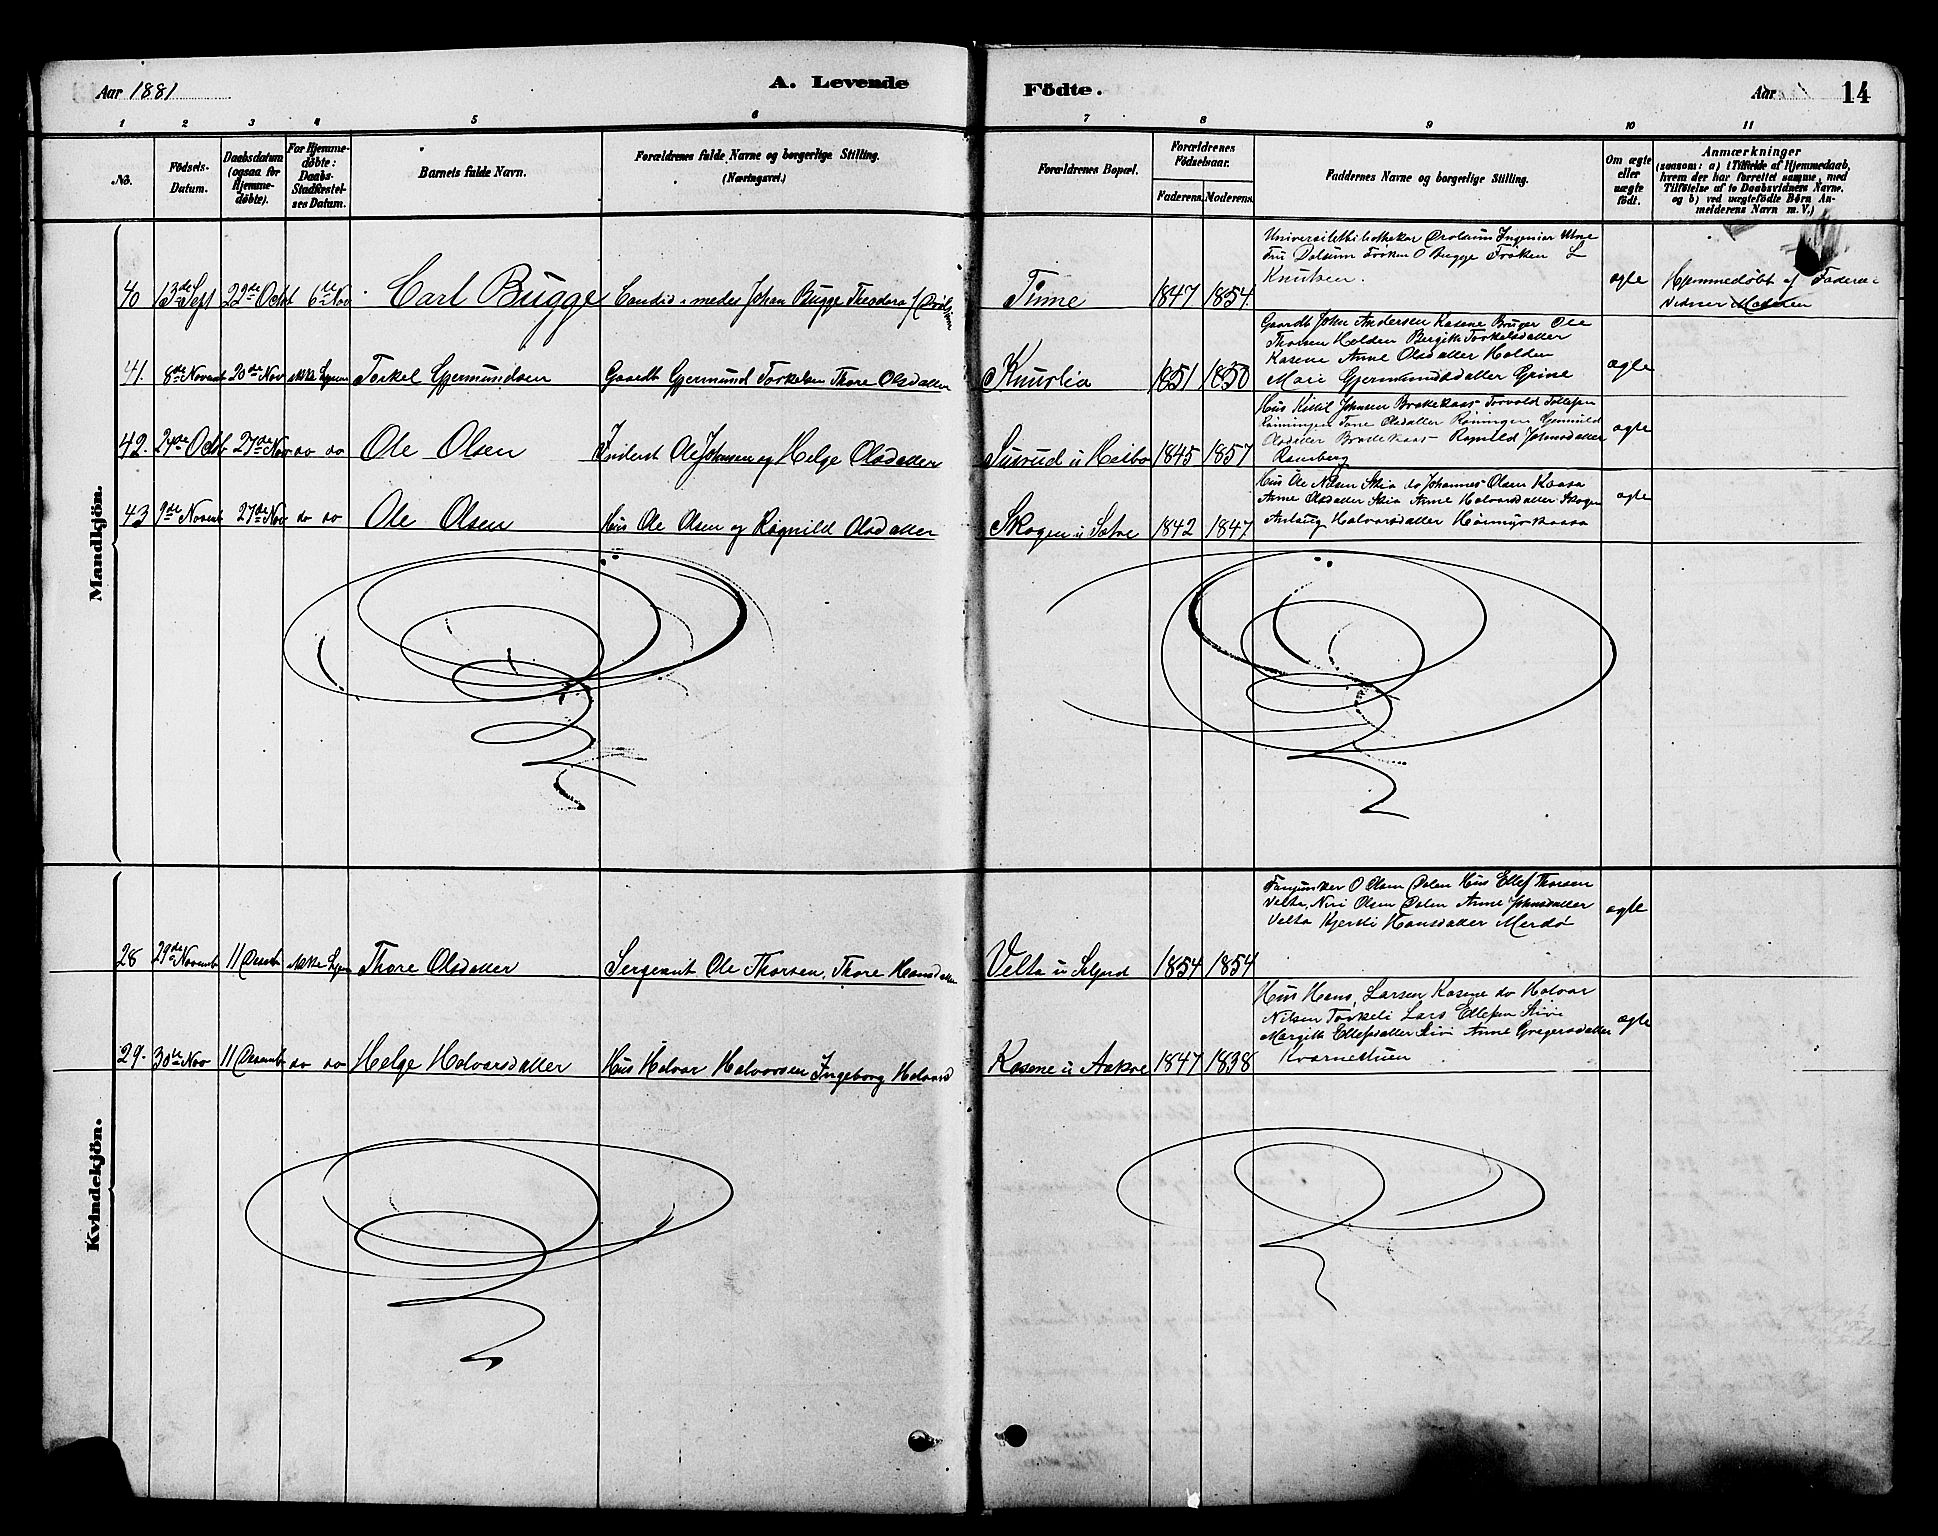 Aar 1881
A. Levende
Födte.
Aar
14
1 2 3 4 5 6 7 8 9 10 11
No.
Födsels-
Datum.
Daabsdatum
(ogsaa for
Hjemme-
döbte).
For Hjemme-
döbte:
Daabs-
Stadfæstel-
ses Datum.
Barnets fulde Navn.
Forældrenes fulde Navne og borgerlige Stilling.
(Næringsvei.)
Forældrenes Bopæl.
Forældrenes
Födselsaar.
Faderens. Moderens.
Faddernes Navne og borgerlige Stilling.
Om ægte
eller
uægte
födt.
Anmærkninger
(saasom: a) i Tilfælde af Hjemmedaab,
hvem der har forrettet samme, med
Tilföielse af to Daabsvidners Navne,
og b) ved uægtefödte Börn An-
melderens Navn m. V.)
Mandkjön.
40 13de Sept 22de Octbr 6te Nov Carl Bugge Candid. med. Johan Bugge Theodora f
Tinne 1847 1854.
Ingeniør
Fru Frøken O Bugge Frøken L
Knutsen.
ægte
Hjemmedøbt af Faderen
41. 8de Novemb 20de Nov ikke hjem Torkel Gjermundsen Gaardb Gjermund Torkelsen Thore Olsdatter
Knuslia 1851 1850
Gaardb John Andersen Kasene Bruger Ole
Thorsen Holden Bergith Torkelsdatter
Kasene Anne Olsdatter Holden
Mari Gjermundsdatter Grine
ægte
42. 24de Octb 27de Nov do do Ole Olsen Inderst Ole Johnsen og Helge Olsdatter
u Heibø 1845 1857
Hus Kittil Johnsen Brakekaas Torvald Tollefsen
Rönningen Tone Olsdatter Röningen Gunnild
Olsdatter Ragnild Johnsdatter
Ramberg
ægte
43 9de Novemb 27de Nov do do Ole Olsen Hus Ole Olsen og Ragnild Olsdatter
Skogen u Sætre 1842 1847.
Hus Ole Nilsen Skia do Johannes Olsen Kaasa
Anne Olsdatter Skia Anne Halvorsdatter Skogen
Aslaug Halvorsdatter
ægte
Kvindekjön.
28 29de Novemb 11 Decemb ikke hjem Thore Olsdatter Sergeant Ole Thorsen, Thore Hansdatter
Velta u 1854 1854
O Olsen Hus Ellef Thorsen
Velta, Olsen Anne Johnsdatter
Velta Kjersti Hansdatter
ægte
29. 30te Nov 11 Decemb do do Helge Halvorsdatter Hus Halvor Halvorsen Ingeborg Halvorsd
Kasene u Aakre 1847 1838
Hus Hans Larsen Kasene do Halvor
Nilsen Torkeli Lars Ellefsen
Margith Ellefsdatter Anne Gregersdatter
Kvarnestuen
ægte